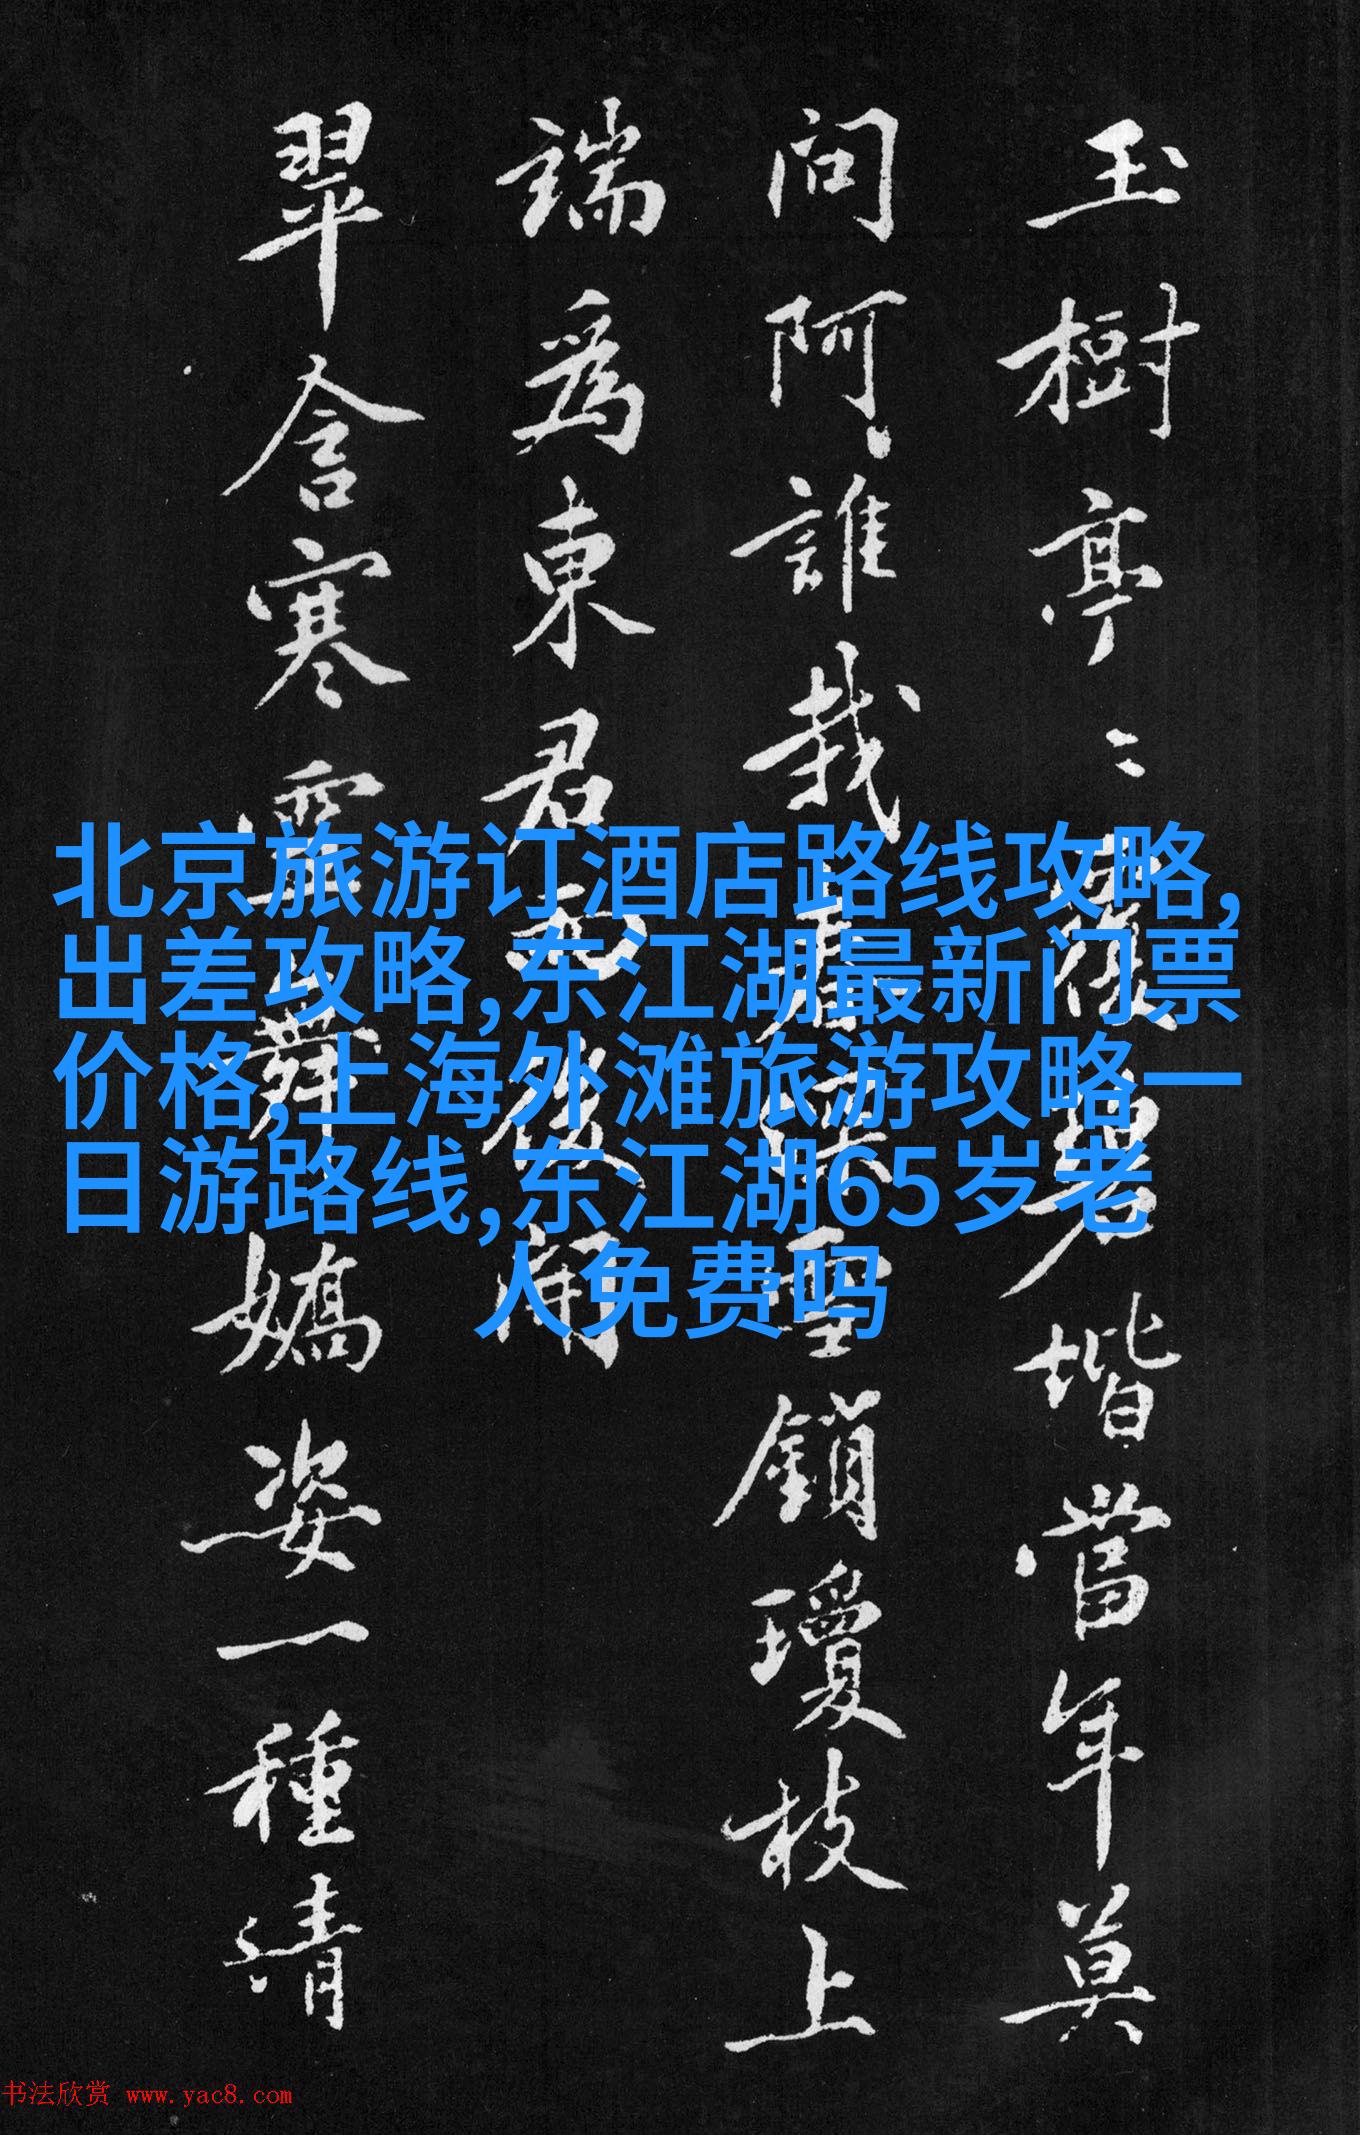 玉樹亭〻
階當年莫
問阿誰栽
雪鎖瓊枝上
端爲東君
翠含寒
嬌姿一種清
北京旅游订酒店路线攻略,
出差攻略,东江湖最新门票
价格,上海外滩旅游攻略一
日游路线,东江湖65岁老
人免费吗
书法欣赏 www.yac8.com